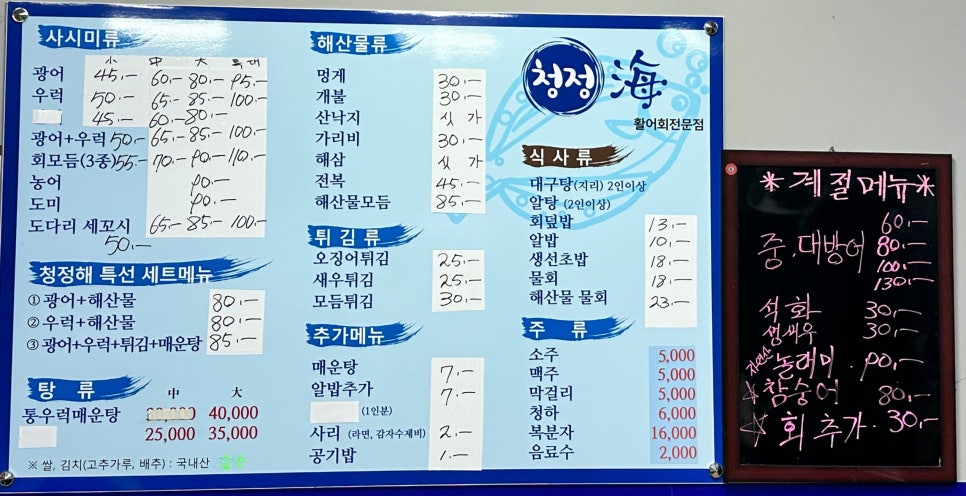 사시미류
小 中 大 특대
광어 45.- 60.- 80.- 95.-
우럭 50.- 65.- 85.- 100.-
45.- 60.- 80.-
광어+우럭 50.- 65.- 85.- 100.-
회모듬(3종) 55.- 70.- 90.- 110.-
농어 90.-
도미 90.-
도다리 세꼬시 65.- 85.- 100.-
50.-
청정해 특선 세트메뉴
①광어+해산물 80.-
②우럭+해산물 80.-
③광어+우럭+튀김+매운탕 85.-
탕 류
中 大
통우럭매운탕 40,000
25,000 35,000
※ 쌀, 김치(고추가루, 배추) : 국내산
해산물류
멍게 30.-
개불 30.-
산낙지 싯가
가리비 30.-
해삼 싯가
전복 45.-
해산물모듬 85.-
튀김류
오징어튀김 25.-
새우튀김 25.-
모듬튀김 30.-
추가메뉴
매운탕 7.-
알밥추가 7.-
(1인분)
사리 (라면, 감자수제비) 2.-
공기밥 1.-
청정 海
활어회전문점
식사류
대구탕(지리) 2인이상
알탕 (2인이상)
회덮밥 13.-
알밥 10.-
생선초밥 18.-
물회 18.-
해산물 물회 23.-
주 류
소주 5,000
맥주 5,000
막걸리 5,000
청하 6,000
복분자 16,000
음료수 2,000
*계절메뉴*
중.대방어 60.-
80.-
100.-
130.-
석화 30.-
생새우 30.-
자연산 놀래미. 90.-
☆참숭어 80.-
☆회추가. 30.-